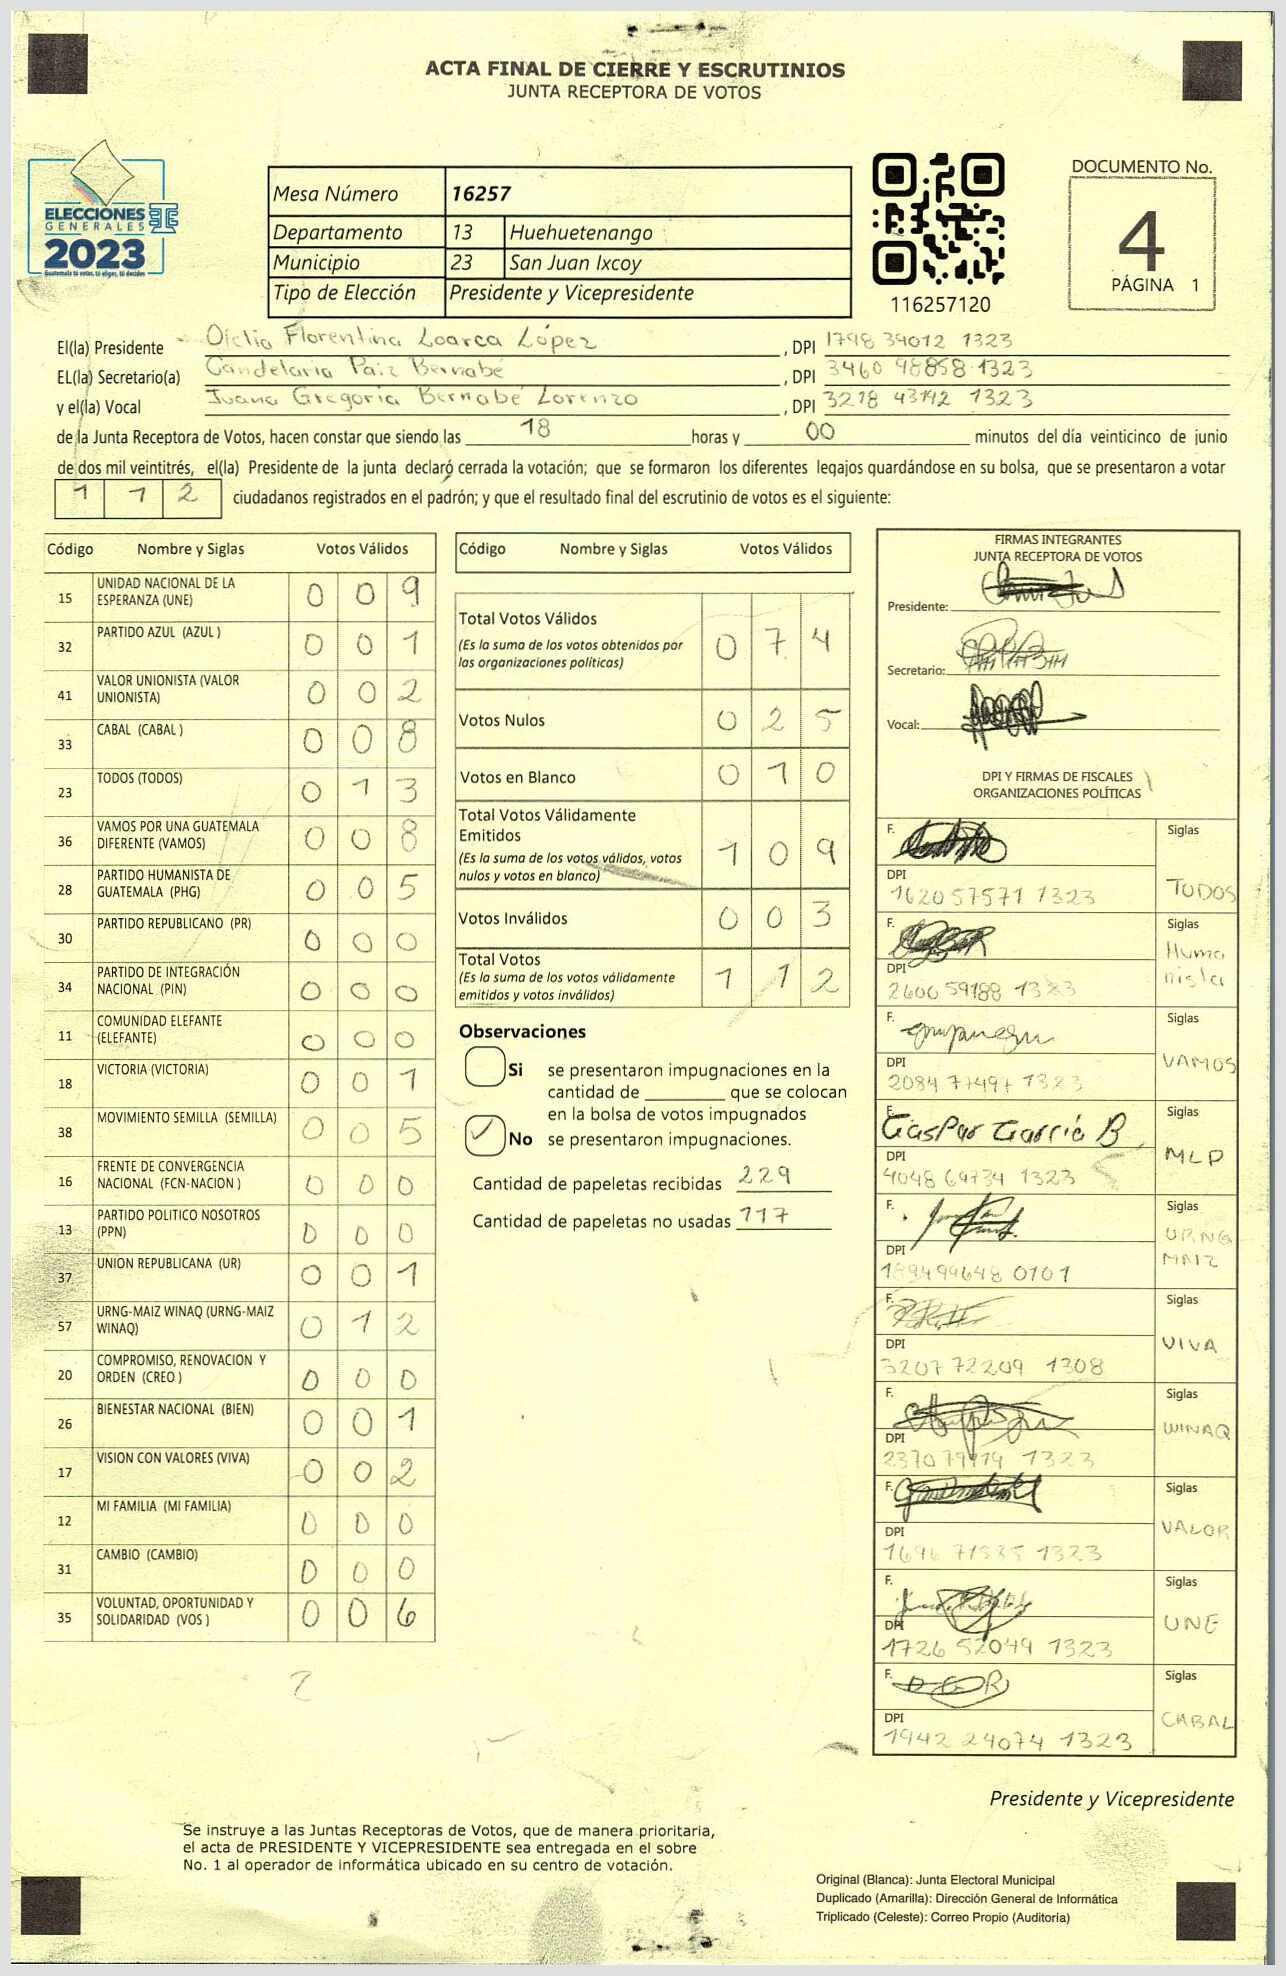 ACTA FINAL DE CIERRE Y ESCRUTINIOS
JUNTA RECEPTORA DE VOTOS
ELECCIONES
GENERALES
2023
Guatemala tú votas, tú eliges, tú decides
Mesa Número 16257
Departamento 13 Huehuetenango
Municipio 23 San Juan Ixcoy
Tipo de Elección Presidente y Vicepresidente
116257120
DOCUMENTO No.
4
PÁGINA 1
El(la) Presidente Florentina Loarca López, DPI 1798 39012 1323
EL(la) Secretario(a) Candelaria Paiz Bernabé, DPI 3460 98858 1323
y el(la) Vocal Juana Gregoria Bernabé Lorenzo, DPI 3218 43142 1323
de la Junta Receptora de Votos, hacen constar que siendo las 18 horas y 00 minutos del día veinticinco de junio
de dos mil veintitrés, el(la) Presidente de la junta declaró cerrada la votación; que se formaron los diferentes legajos guardándose en su bolsa, que se presentaron a votar
112 ciudadanos registrados en el padrón; y que el resultado final del escrutinio de votos es el siguiente:
Código Nombre y Siglas Votos Válidos
15 UNIDAD NACIONAL DE LA ESPERANZA (UNE) 0 0 9
32 PARTIDO AZUL (AZUL ) 0 0 1
41 VALOR UNIONISTA (VALOR UNIONISTA) 0 0 2
33 CABAL (CABAL ) 0 0 8
23 TODOS (TODOS) 0 1 3
36 VAMOS POR UNA GUATEMALA DIFERENTE (VAMOS) 0 0 8
28 PARTIDO HUMANISTA DE GUATEMALA (PHG) 0 0 5
30 PARTIDO REPUBLICANO (PR) 0 0 0
34 PARTIDO DE INTEGRACIÓN NACIONAL (PIN) 0 0 0
11 COMUNIDAD ELEFANTE (ELEFANTE) 0 0 0
18 VICTORIA (VICTORIA) 0 0 1
38 MOVIMIENTO SEMILLA (SEMILLA) 0 0 5
16 FRENTE DE CONVERGENCIA NACIONAL (FCN-NACION ) 0 0 0
13 PARTIDO POLITICO NOSOTROS (PPN) 0 0 0
37 UNION REPUBLICANA (UR) 0 0 1
57 URNG-MAIZ WINAQ (URNG-MAIZ WINAQ) 0 1 2
20 COMPROMISO, RENOVACION Y ORDEN (CREO ) 0 0 0
26 BIENESTAR NACIONAL (BIEN) 0 0 1
17 VISION CON VALORES (VIVA) 0 0 2
12 MI FAMILIA (MI FAMILIA) 0 0 0
31 CAMBIO (CAMBIO) 0 0 0
35 VOLUNTAD, OPORTUNIDAD Y SOLIDARIDAD (VOS ) 0 0 6
Código Nombre y Siglas Votos Válidos
Total Votos Válidos 0 7 4
(Es la suma de los votos obtenidos por
las organizaciones políticas)
Votos Nulos 0 2 5
Votos en Blanco 0 1 0
Total Votos Válidamente
Emitidos 1 0 9
(Es la suma de los votos válidos, votos
nulos y votos en blanco)
Votos Inválidos 0 0 3
Total Votos 1 1 2
(Es la suma de los votos válidamente
emitidos y votos inválidos)
Observaciones
Si se presentaron impugnaciones en la
cantidad de ________ que se colocan
en la bolsa de votos impugnados
✓ No se presentaron impugnaciones.
Cantidad de papeletas recibidas 229
Cantidad de papeletas no usadas 117
FIRMAS INTEGRANTES
JUNTA RECEPTORA DE VOTOS
Presidente:
Secretario:
Vocal:
DPI Y FIRMAS DE FISCALES
ORGANIZACIONES POLÍTICAS
F. Siglas
DPI TODOS
1620 57571 1323
F. Siglas
DPI Humanista
2600 59188 1323
F. Siglas
DPI VAMOS
2084 77497 1323
F. Gaspar García B Siglas
DPI MLP
4048 69734 1323
F. Siglas
DPI URNG MAIZ
1894 99648 0101
F. Siglas
DPI VIVA
3207 72209 1308
F. Siglas
DPI WINAQ
1323
F. Siglas
DPI VALOR
1323
F. Siglas
DPI UNE
1726 52049 1323
F. Siglas
DPI CABAL
1942 24074 1323
Presidente y Vicepresidente
Se instruye a las Juntas Receptoras de Votos, que de manera prioritaria,
el acta de PRESIDENTE Y VICEPRESIDENTE sea entregada en el sobre
No. 1 al operador de informática ubicado en su centro de votación.
Original (Blanca): Junta Electoral Municipal
Duplicado (Amarilla): Dirección General de Informática
Triplicado (Celeste): Correo Propio (Auditoría)